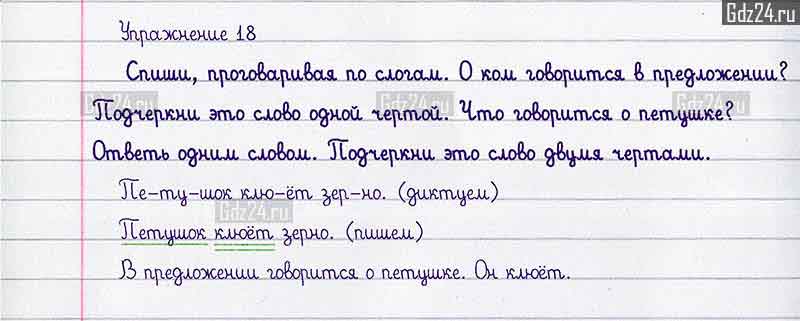 Gdz24.ru
Упражнение 18
Спиши, проговаривая по слогам. О ком говорится в предложении?
Gdz24.ru Gdz24.ru Gdz24.ru
Подчеркни это слово одной чертой. Что говорится о петушке?
Ответь одним словом. Подчеркни это слово двумя чертами.
Пе-ту-шок клю-ёт зер-но. (диктуем)
Gdz24.ru
Петушок клюёт зерно. (пишем)
В предложении говорится о петушке. Он клюёт.